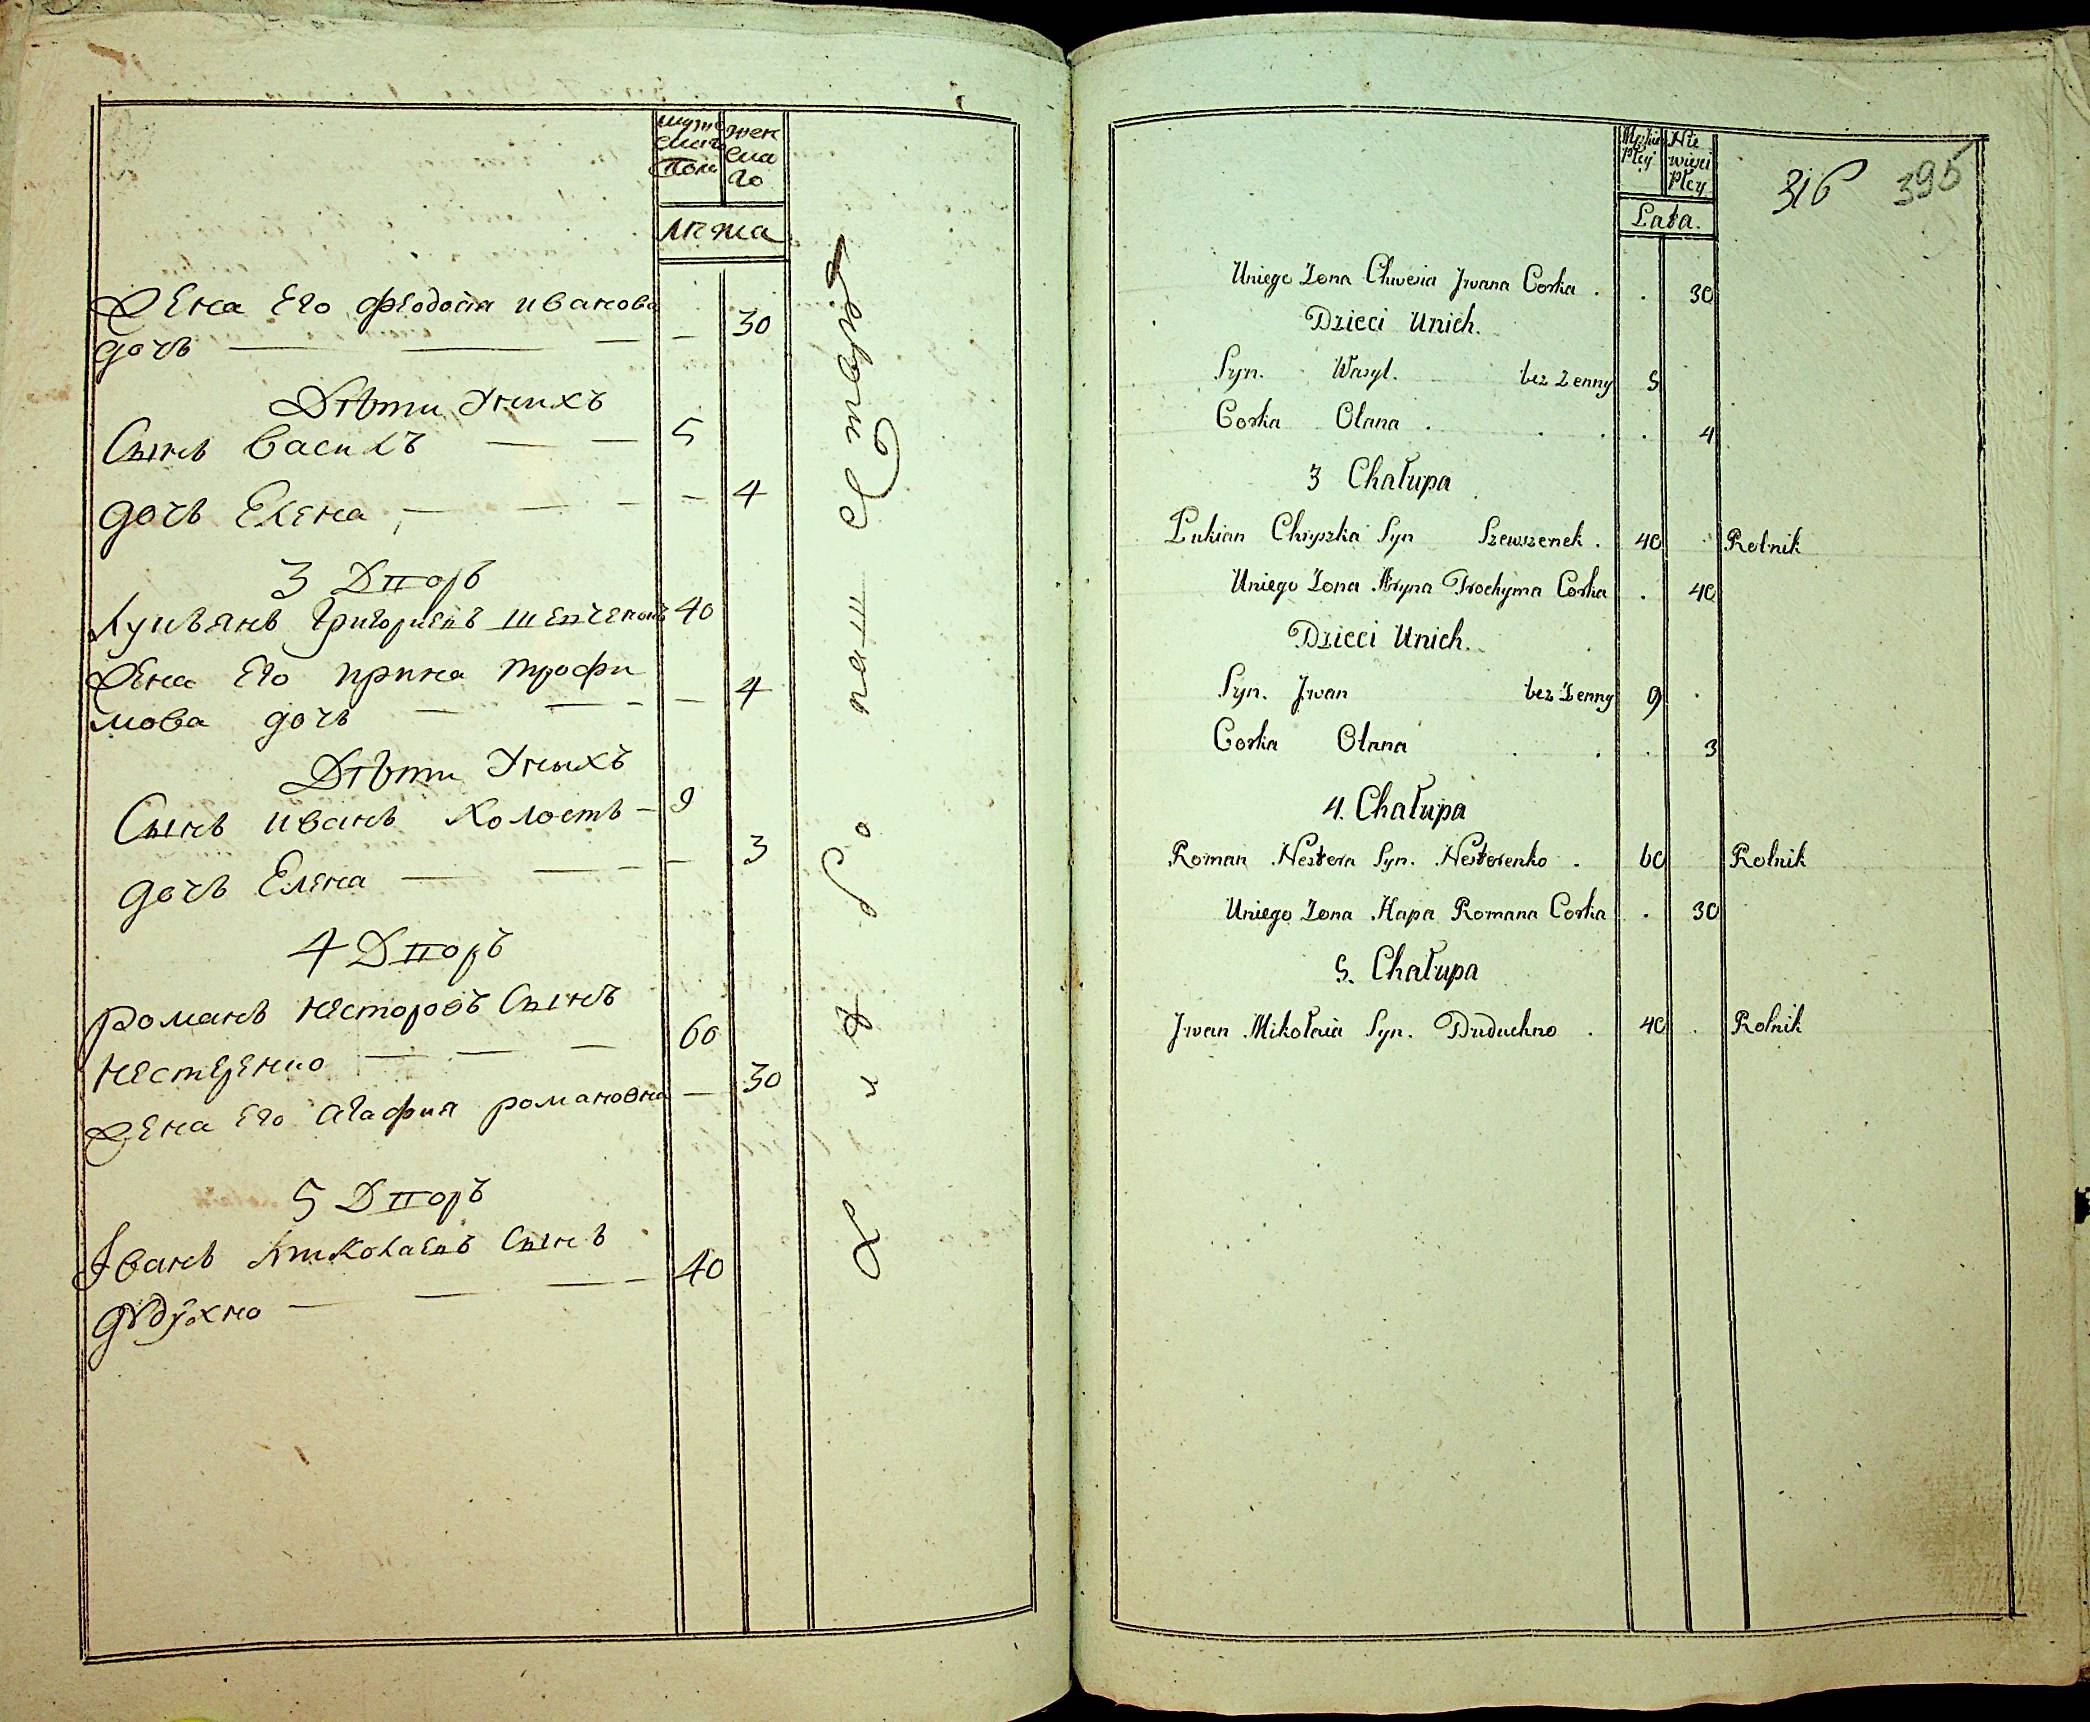 мужеска пола
женскаго
Лѣта
Жена Его Феодосія иванова
дочъ — 30
Дѣти Униxъ
Сынъ Василъ — 5
дочъ Елена — 4
3 Дворъ
Лукъянъ Григориевъ Шевченокъ 40
Жена Его ирина трофи
мова дочъ — 4
Дѣти Унихъ
Сынъ иванъ Холостъ — 9
дочъ Елена — 3
4 Дворъ
романъ Несторовъ Сынъ
нестеренко — 60
Жена Его агафия романовна — 30
5 Дворъ
Іванъ николаевъ Сынъ
дудухно — 40
316 395
Męzkiey Płcy
Niewiesciey Płcy
Lata.
Uniego Zona Chwesia Jwana Corka . . 30
Dzieci Unich.
Syn. Wasyl. bez Zenny 5
Corka Olana . . . . 4
3 Chałupa
Łukian Chryszka Syn Szewszenek . 40 Rolnik
Uniego Zona Aryna Trochyma Corka . 40
Dzieci Unich.
Syn. Jwan bez Zenny 9 .
Corka Olana . . . 3
4. Chałupa
Roman Nestera Syn. Nesterenko . 60 Rolnik
Uniego Zona Hapa Romana Corka . 30
5. Chałupa
Jwan Mikołaia Syn. Duduchno . 40 . Rolnik